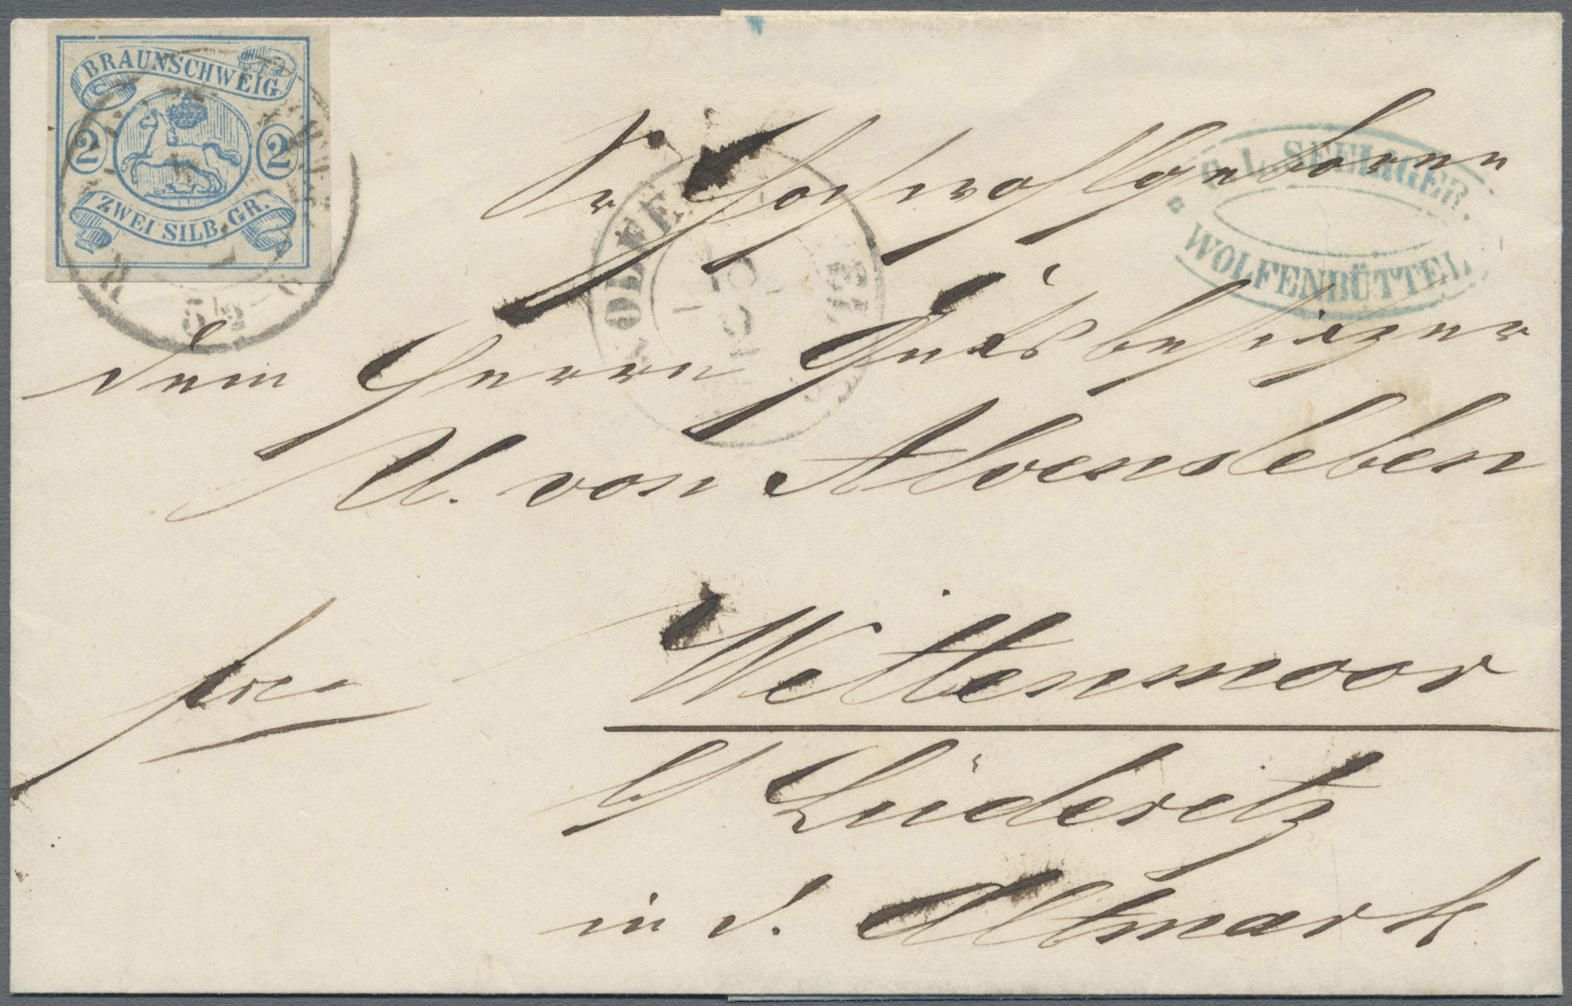 BRAUNSCHWEIG.
2 2
ZWEI SILB. GR.
5½
WOLFE
L. SEELIGER
WOLFENBÜTTEL
Sr Hochwohlgeboren
dem Herrn Gutsbesitzer
U. von Alvensleben
frco
Wittenmoor
b/ Lüderitz
in d. Altmark